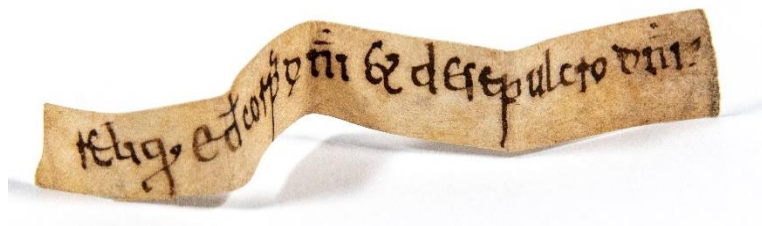 reliq; e đ corp̄ dn̄i & desepulcro dn̄i: